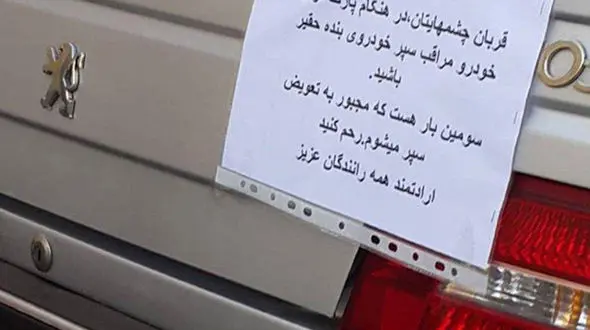 قربان چشمهایتان،در هنگام پارک
خودرو مراقب سپر خودروی بنده حقیر
باشید.
سومین بار هست که مجبور به تعویض
سپر میشوم.رحم کنید
ارادتمند همه رانندگان عزیز